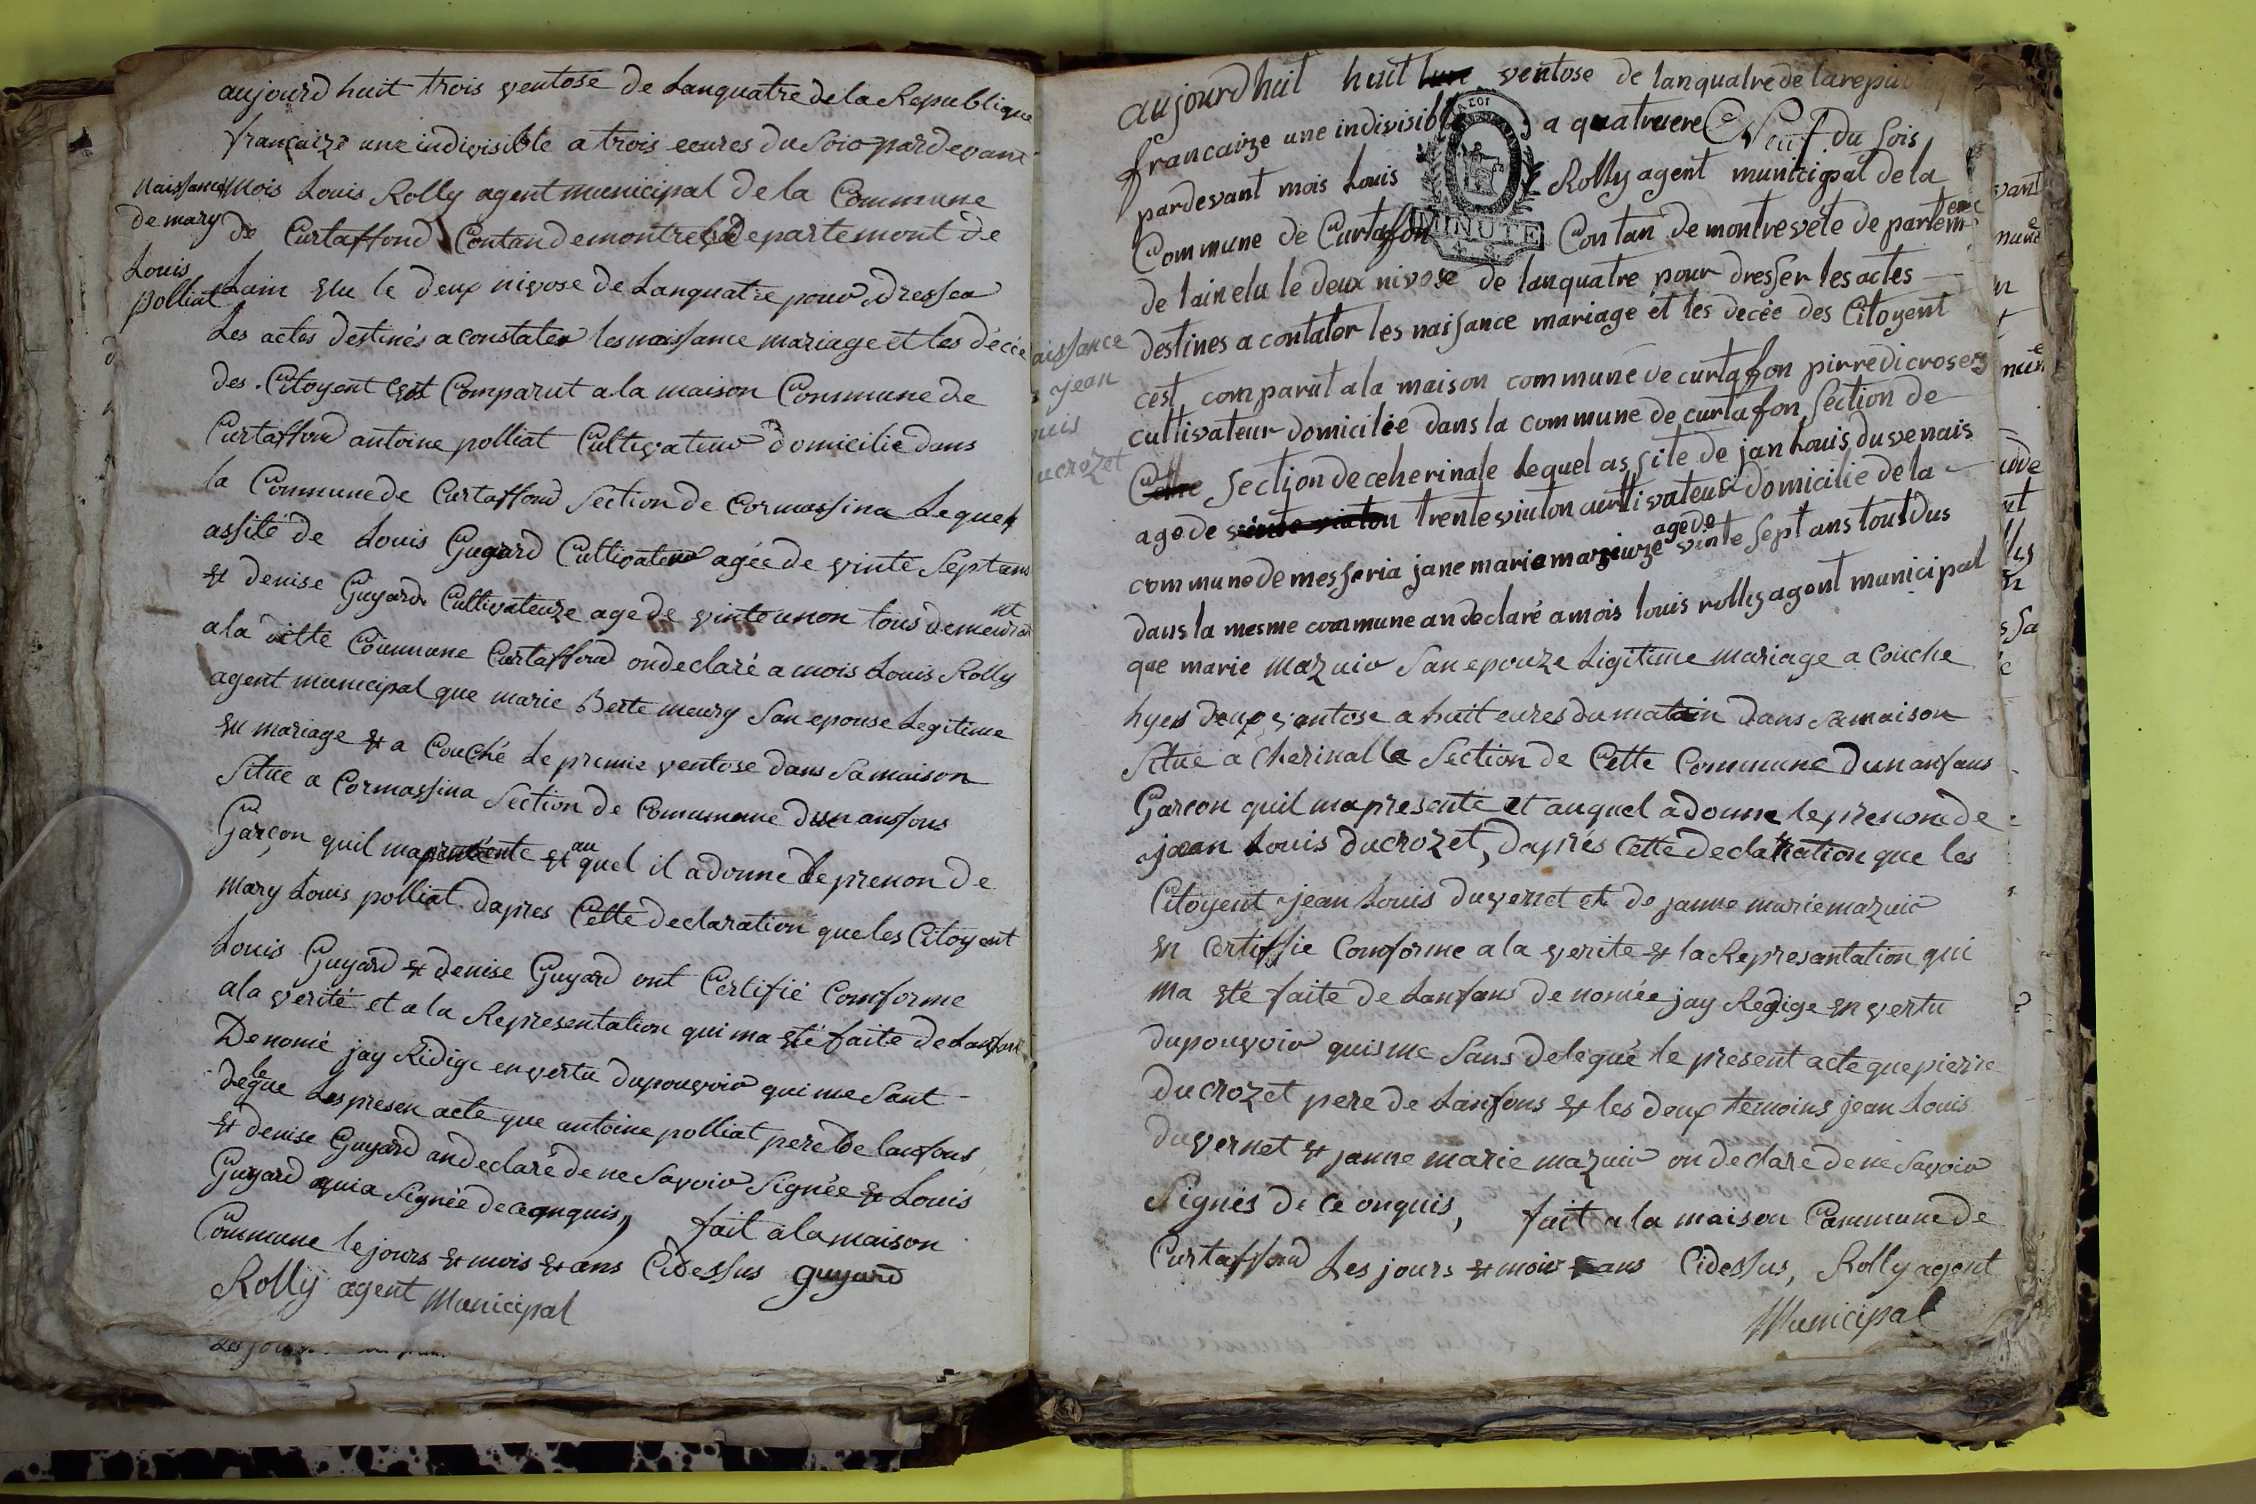 aujourd huit trois ventose de Lanquatre de la Republique
francaize une indivisible a trois eeures du Soir pardevant
Naissance
de mary
Louis
polliat
mois Louis Rolly agent municipal de la Commune
de Curtaffond Contan de montrevé Departemont de
Lain Elu le deux nivose de Lanquatre pour dresser
Les actes destinés a constater les naissance mariage et les décée
des Citoyent Cest Comparut a la maison Commune de
Curtaffond antoine polliat Cultivateur domicilie dans
la Commune de Curtaffond Section de Cormassina Lequel
assité de Louis Guyard Cultivateur agée de vinte Sept ans
Et denise Guyard Cultivateuze age de vinte unon tous demeurant
a la ditte Commune Curtaffond ondeclaré a mois Louis Rolly
agent municipal que marie Berte meury San epouse Legitime
En mariage Et a Couché le premie ventose dans Sa maison
Situe a Cormassina Section de Commune dun ansfans
Garçon quil ma presente Et au quel il a donne le prenon de
Mary Louis polliat dapres Cette declaration que les Citoyent
Louis Guyard Et denise Guyard ont Certifié Comforme
a la verité et a la Representation qui ma Eté faite de Lanfans
Denomé jay Ridige en vertu dupouvoir qui me Sant
delegue Les presen acte que antoine polliat pere de lanfans
Et denise Guyard an declaré de ne Savoir Signée Et Louis
Guyard qui a Signée de ce enquis, fait a la maison
Commune le jours Et mois Et ans Cidessus guyard
Rolly agent Municipal
Les jour
aujourdhuit huit ventose de lanquatre de la repub
francaize une indivisible a quatre uere Neuf du Sois
pardevant mois Louis Rolly agent municipal de la
Commune de Curtafon Contan de montrevéte de partem
MINUTE
de lain elu le deux nivose de lanquatre pour dresser les actes
destines a contater les naissance mariage et les decée des Citoyent
aissance
jean
uis
ucrozet
cest comparut a la maison commune de curtafon pirre dicroset
cultivateur domicilée dans la commune de curtafon Section de
Section de ceherinale Lequel assite de jan Louis duvenais
age de trente viuton curtivateur domicilie de la
commune de messeria jane marie maziuze age de vinte Sept ans tout dus
dans la mesme commune an declaré a mois louis rolly agent municipal
que marie mazuir San epouze Ligitime mariage a Couche
hyer deux ventose a huit eures du matain dans Sa maison
Situe a Cherinalle Section de Cette Commune dun anfans
Garcon quil ma presenté et auquel a donne le prenom de
jean Louis Ducrozet, dapres Cette declaration que les
Citoyent jean Louis duvernet et de janne marie mazuir
En Certiffie Comforme a la verite Et la Represantation qui
ma Eté faite de Lanfans de nomée jay Redige En vertu
dupouvoir quisme Sans delegué le present acte que pierre
ducrozet pere de Lanfans Et les deux temoins jean Louis
duvernet Et janne marie mazuir on declare de ne Savoir
Signés de ce onquis, fait a la maison Commune de
Curtaffond Les jours Et mois Et ans Cidessus, Rolly agent
Municipal